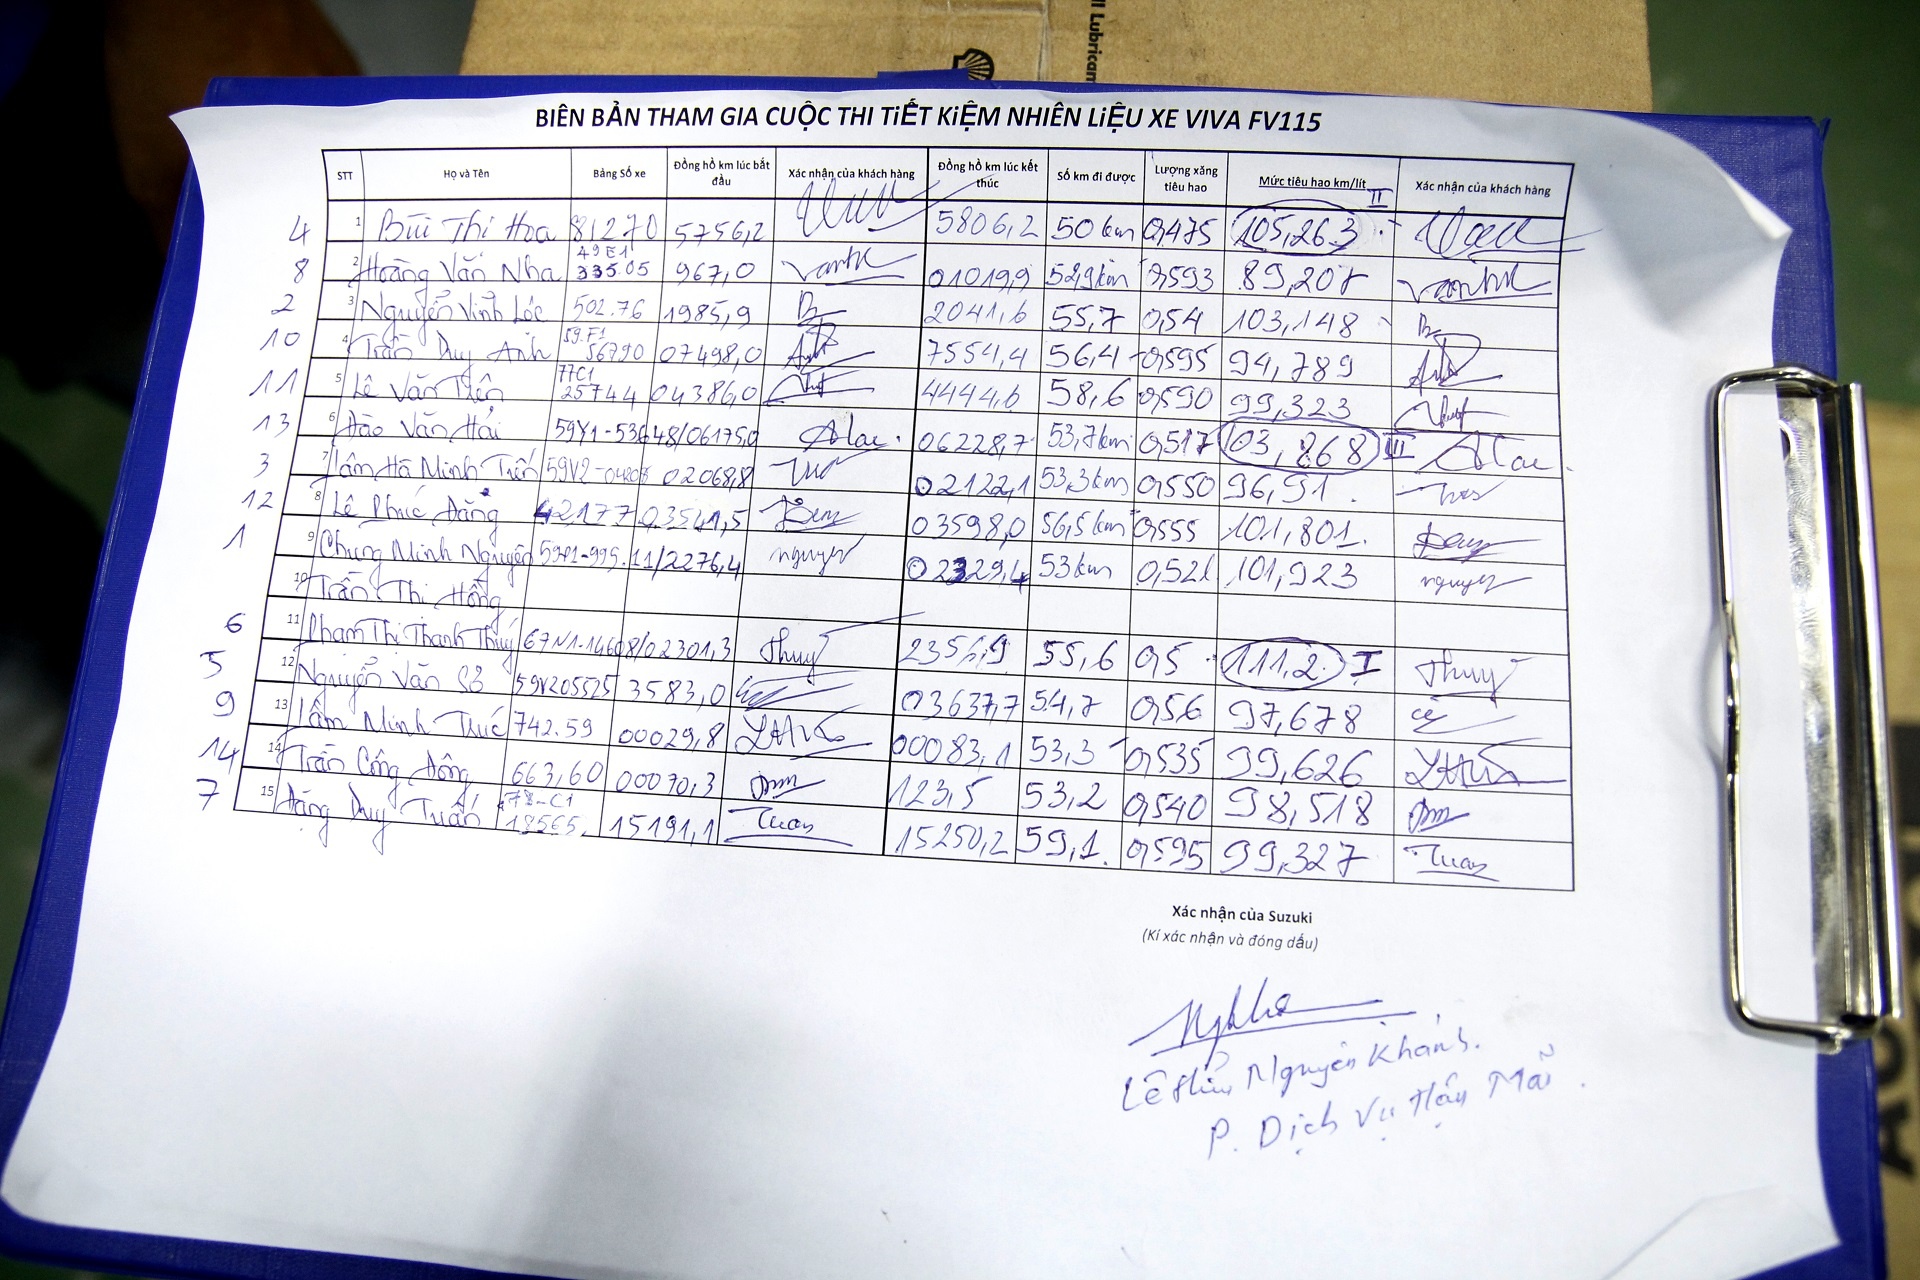 ll Lubrican
BIÊN BẢN THAM GIA CUỘC THI TIẾT KIỆM NHIÊN LIỆU XE VIVA FV115
STT Họ và Tên Bảng Số xe Đồng hồ km lúc bắt đầu Xác nhận của khách hàng Đồng hồ km lúc kết thúc Số km đi được Lượng xăng tiêu hao Mức tiêu hao km/lít Xác nhận của khách hàng
4 1 Bùi Thị Hoa 81270 5756,2 5806,2 50 km 0,475 105,263 II
8 2 Hoàng Văn Nha 49E1 335.05 967,0 01019,9 52,9km 0,593 89,208
2 3 Nguyễn Vĩnh Lộc 502.76 1985,9 2041,6 55,7 0,54 103,148
10 4 Trần Duy Anh 59.F1 56790 07498,0 7554,4 56,4 0,595 94,789
11 5 Lê Văn Tiên 77C1 25744 04386,0 4444,6 58,6 0,590 99,323
13 6 Đào Văn Hải 59Y1-53648/06175,0 06228,7 53,7km 0,517 103,868 III
3 7 Lâm Hà Minh Tiến 59V2- 02068,8 02122,1 53,3km 0,550 96,91
12 8 Lê Phúc Đằng 42177 03541,5 03598,0 56,5km 0,555 101,801
1 9 Chung Minh Nguyên 59P1-995.11/2276,4 nguyen 02329,4 53km 0,52l 101,923 nguyen
10 Trần Thị Hồng
6 11 Phạm Thị Thanh Thúy 67N1-14608/02301,3 Thuy 2356,9 55,6 0,5 111,2 I Thuy
5 12 Nguyễn Văn Sở 59V205525 3583,0 03637,7 54,7 0,56 97,678
9 13 Lâm Minh Thức 742.59 00029,8 00083,1 53,3 0,535 99,626
14 14 Trần Công Đông 663,60 00070,3 123,5 53,2 0,540 98,518
7 15 Đặng Duy Tuấn 78-C1 18565 15191,1 Tuan 15250,2 59,1 0,595 99,327 Tuan
Xác nhận của Suzuki
(Kí xác nhận và đóng dấu)
Lê Hữu Nguyên Khánh.
P. Dịch Vụ Hậu Mãi.